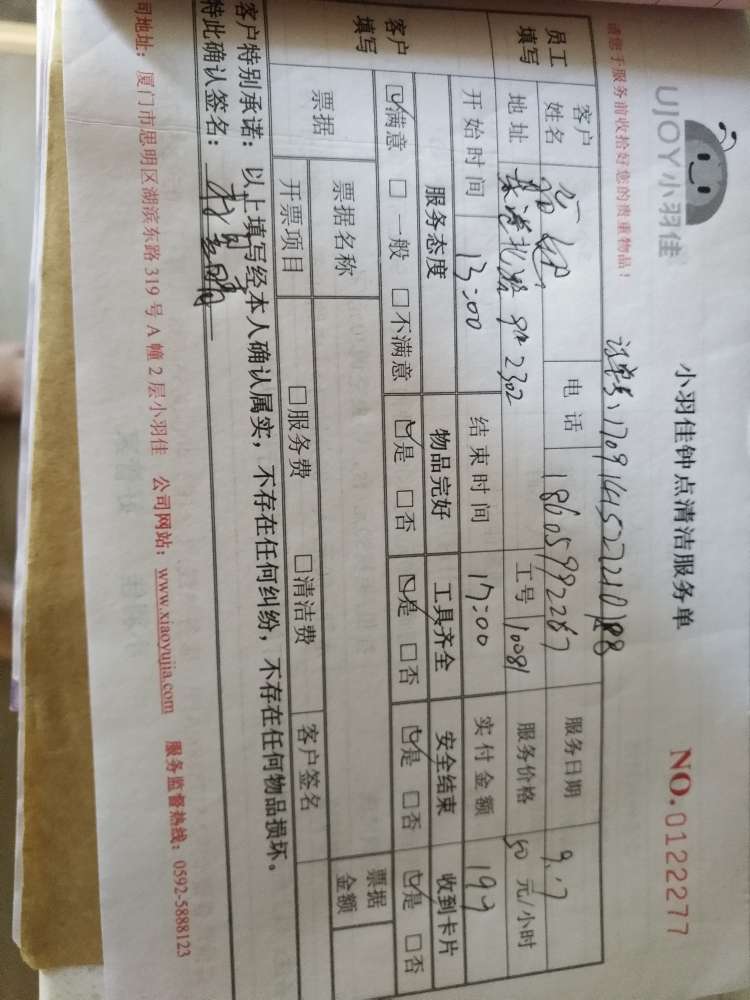 UJOY小羽佳
小羽佳钟点清洁服务单
NO.0122277
请您于服务前收拾好您的贵重物品！
员工填写
客户姓名
电话 18605992287
服务日期 9.17
地址
工号 10081
服务价格 50 元/小时
开始时间 13:00
结束时间 17:00
实付金额
客户填写
服务态度 物品完好 工具齐全 安全结束 收到卡片
☑满意 □一般 □不满意 ☑是 □否 ☑是 □否 ☑是 □否 ☑是 □否
票据
票据名称
票据金额
开票项目 □服务费 □清洁费 客户签名
客户特别承诺：以上填写经本人确认属实，不存在任何纠纷，不存在任何物品损坏。
特此确认签名：
司地址：厦门市思明区湖滨东路 319 号 A 幢 2 层小羽佳 公司网站：www.xiaoyujia.com 服务监督热线：0592-5888123